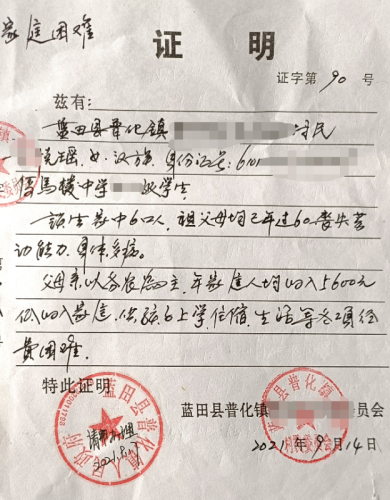 家庭困难
证 明
证字第 90 号
兹有:
蓝田县普化镇 村民
瑶,女,汉族,身份证号:610
马楼中学 学生
该生家中6口人,祖父母均已年过60,丧失劳
动能力,身体多病。
父亲以务农为主,年家庭人均收入5600元
低收入家庭,供孩子上学,住宿,生活等各项经
费困难。
特此证明
蓝田县普化镇 委员会
2021 年 9 月 14 日
蓝田县普化镇人民政府
情况属实
2021.
县普化镇